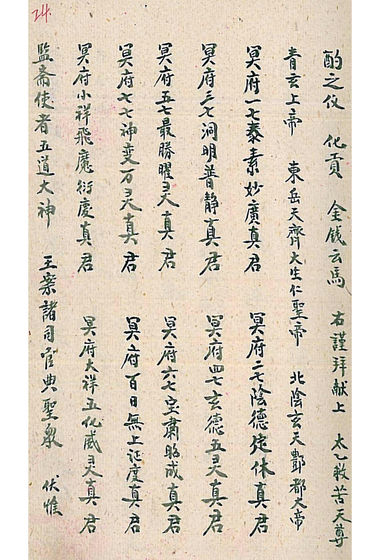 24.
酌之仪 化贡 金钱云马 右謹拜献上 太乙救苦天尊
青玄上帝 東岳天齊大生仁聖帝 北陰玄天酆都大帝
冥府一七泰素妙廣真君 冥府二七陰德定休真君
冥府三七洞明普静真君 冥府四七玄德五灵真君
冥府五七最勝曜灵真君 冥府六七宝肅昭成真君
冥府七七神变万灵真君 冥府百日無上证度真君
冥府小祥飛魔衍慶真君 冥府大祥五化威灵真君
監斋使者五道大神 王案諸司官典聖衆 伏惟